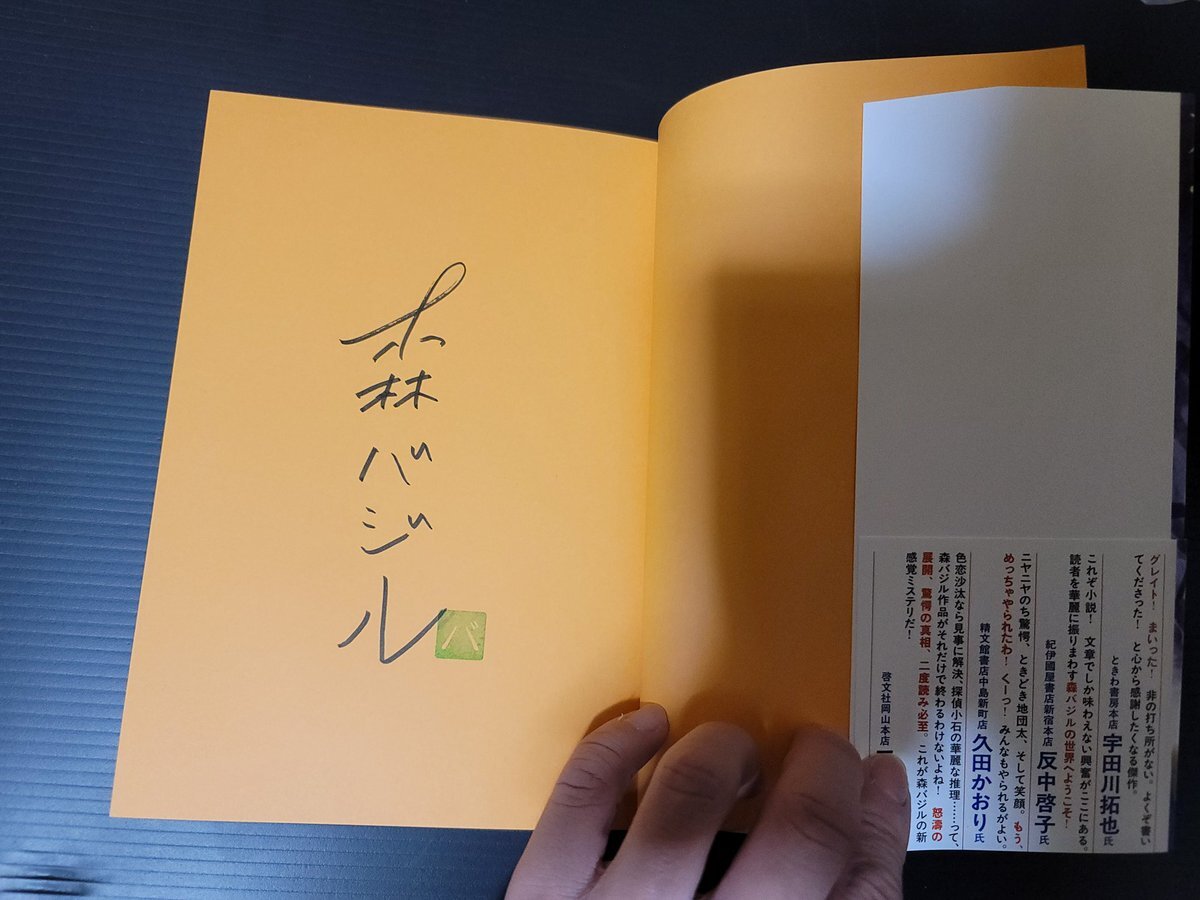 森バジル
バ
グレイト! まいった! 非の打ち所がない。よくぞ書い
てくださった! と心から感謝したくなる傑作。
ときわ書房本店 宇田川拓也氏
これぞ小説! 文章でしか味わえない興奮がここにある。
読者を華麗に振りまわす森バジルの世界へようこそ!
紀伊國屋書店新宿本店 反中啓子氏
ニヤニヤのち驚愕、ときどき地団太、そして笑顔。もう、
めっちゃやられたわ! くーっ! みんなもやられるがよい。
精文館書店中島新町店 久田かおり氏
色恋沙汰なら見事に解決、探偵小石の華麗な推理……って、
森バジル作品がそれだけで終わるわけないよね! 怒濤の
展開、驚愕の真相、二度読み必至。これが森バジルの新
感覚ミステリだ!
啓文社岡山本店